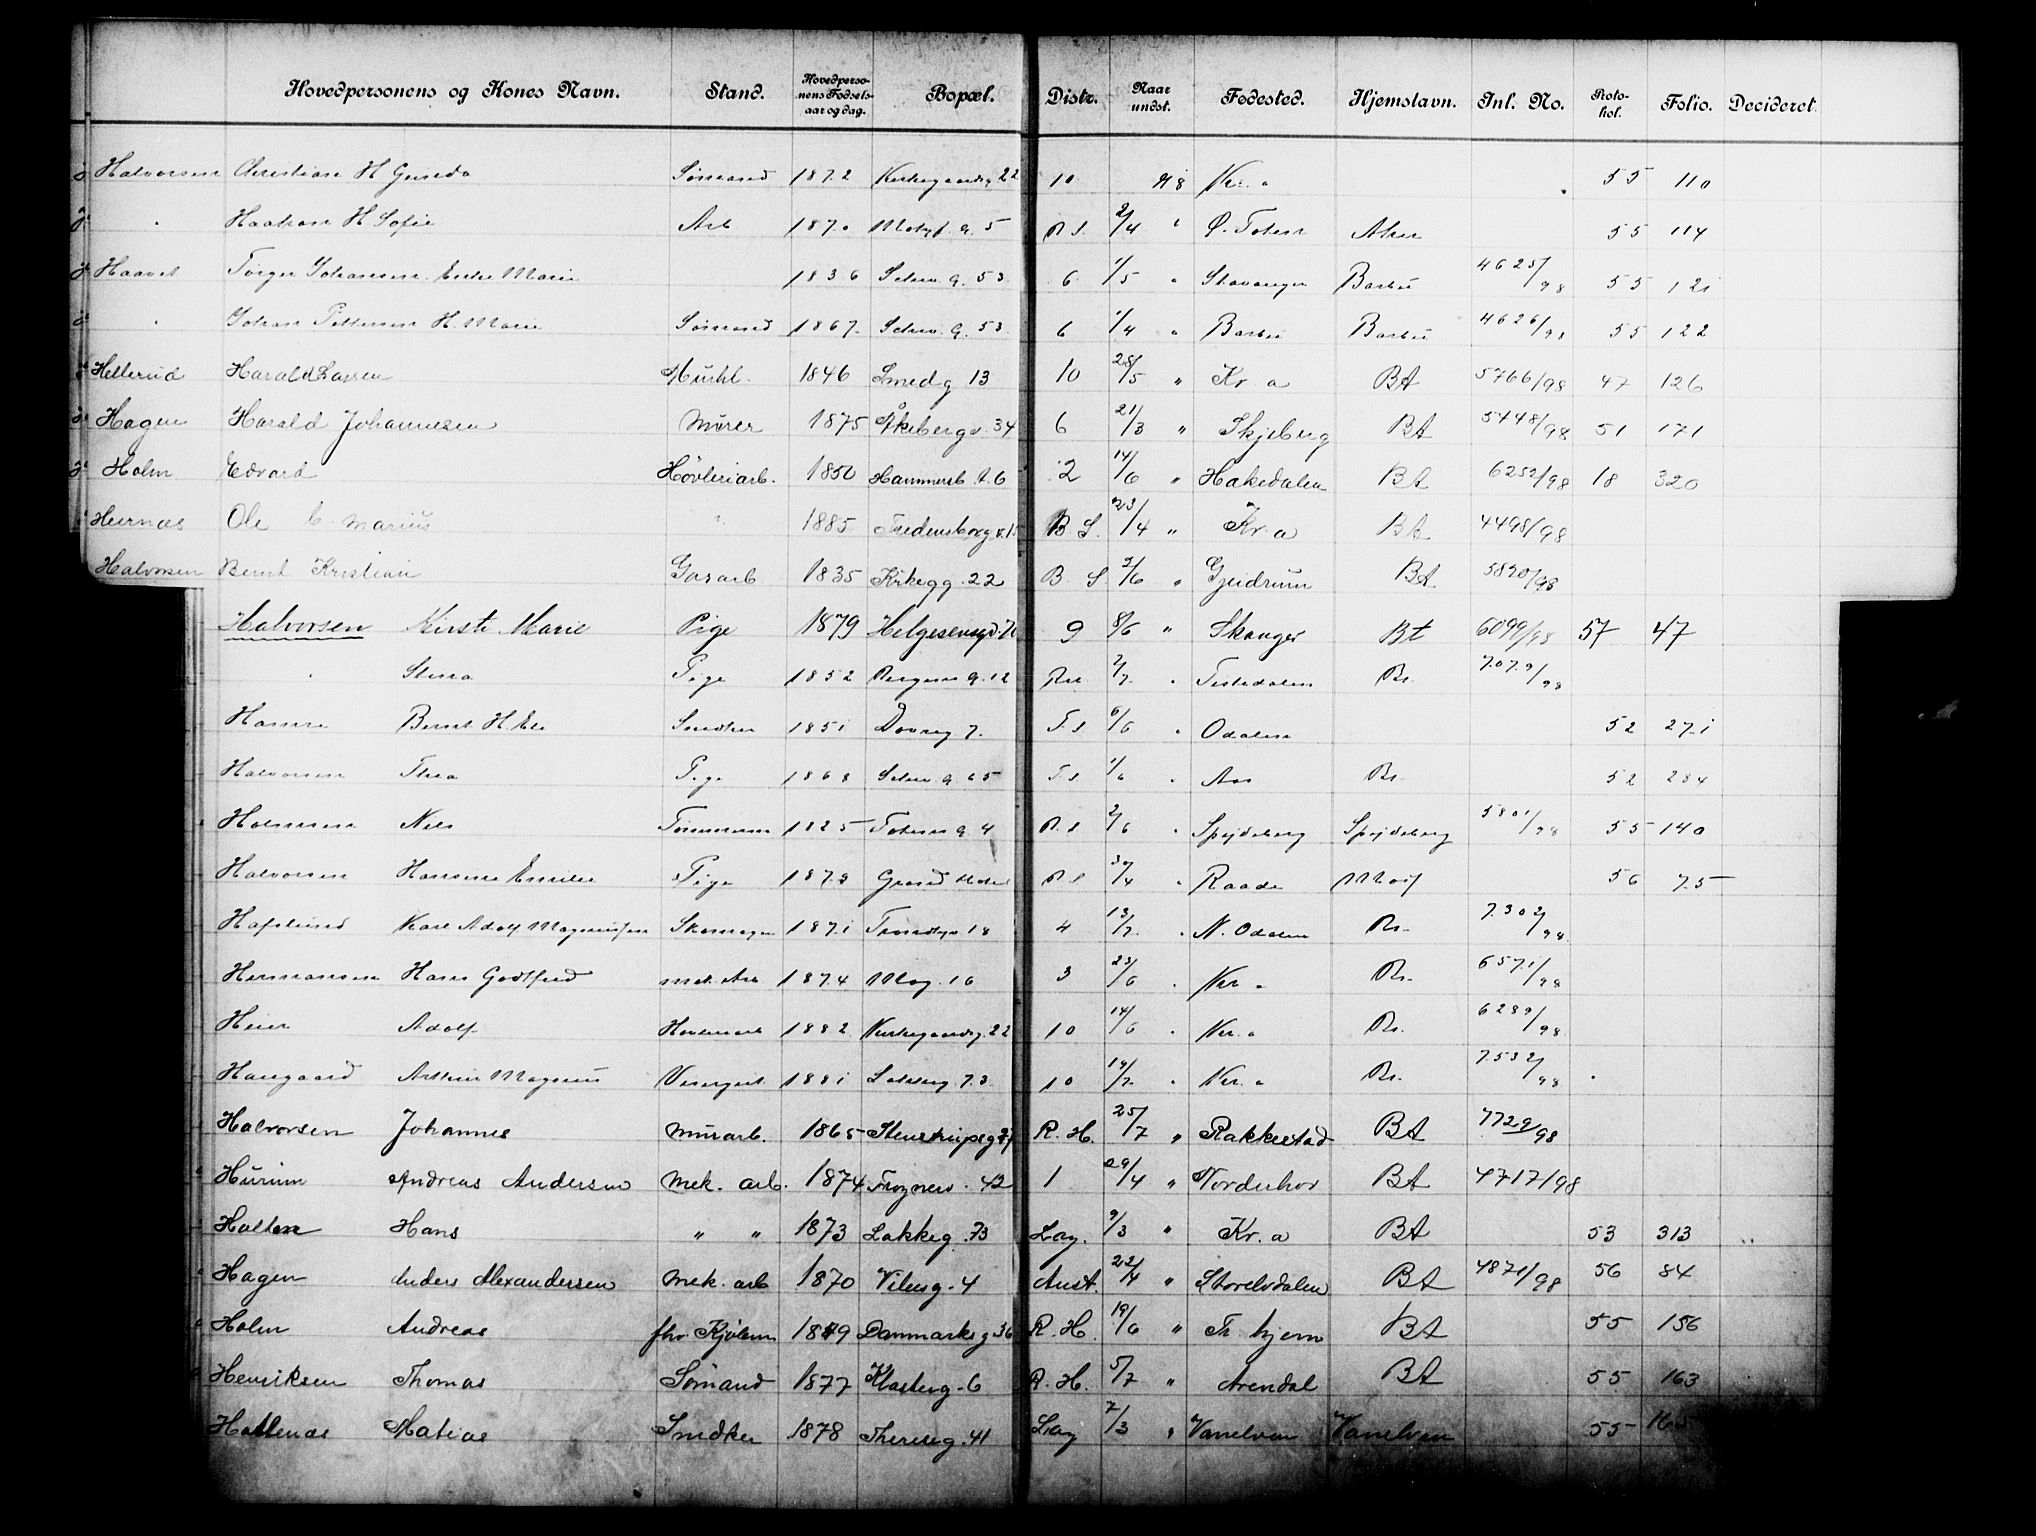 Hovedpersonens og Kones Navn. Stand. Hovedperso-nens Fødsels-aar og dag. Bopæl. Distr. Naar undst. Fødested. Hjemstavn. Inl. No. Proto-kol. Folio. Decideret.
Halvorsen Christian H Gunda Sømand 1872 Kirkegaardsg. 22 10 98 Kr. a 55 110
" Haakon H Sofie Arb 1870 5 R S. 2/4 " Ø. Toten Aker 55 114
Haavet Torger Johansen Marie 1836 Schw. g. 53 6 1/5 " Stavanger Barbu 4625/98 55 121
" Johan Pettersen H. Marie Sømand 1867 Schw. g. 53 6 1/4 " Barbu Barbu 4626/98 55 122
Hellerud Harald Larsen 1846 Smedg 13 10 28/5 " Kr a BA 5766/98 47 126
Hagen Harald Johannesen Murer 1875 Åkebergv. 34 6 21/3 " Skjeberg BA 5448/98 51 171
Holm Edvard Høvleriarb. 1850 Hammersb. g. 6 2 14/6 " Hakedalen BA 6252/98 18 320
Hernæs Ole C. Marius " 1885 Fredensborgv. B S. 23/4 " Kr a BA 4498/98
Halvorsen Bernt Kristian Gasarb 1835 Kirkegg. 22 B. S. 2/6 " Gjeidrum BA. 5820/98
Halvorsen Kirsti Marie Pige 1879 Helgesensgd. 9 8/6 " Skanger Bt 6099/98 57 47
" Stina Pige 1852 Bergens g. 12 2/7 " Tistedalen Br. 7079/98
Hansen Bernt H. Eli Snedker 1851 Dovreg 7. F. s 6/6 " Odalen 52 271
Halvorsen Thea Pige 1868 Schw. g. 65 F. s 1/6 " Aas Br. 52 284
Halvorsen Nils Tømmerm 1825 Totens g. 4 R. s 2/6 " Spydeberg Spydeberg 5801/98 55 140
Halvorsen Hansine Emilie Pige 1873 Grand Hotel R s 30/4 " Raade Moss 56 75
Hafslund Karl Adolf Magnussen Skomager 1871 Trondhjv 18 4 13/7 " N. Odalen Br. 7302/98
Hermansen Hans Godtfred mek. Arb 1874 Møg. 16 3 23/6 " Kr. a Br. 6571/98
Heier Adolf Høvleriarb 1882 Kirkegaardsg. 22 10 14/6 " Kr. a Br. 6289/98
Haugaard Arthur Magnus Visergut 1881 73 10 19/7 " Kr. a Br. 7532/98
Halvorsen Johannes Murarb. 1865 Stenstrupsg R. H. 25/7 " Rakkestad BA 7729/98
Hurum Andreas Andersen Mek. arb. 1874 Frognerv. 42 1 29/4 " Norderhov BA 4717/98
Holten Hans " " 1873 Lakkeg. 73 Lag. 9/3 " Kr. a BA 53 313
Hagen Anders Alexandersen Mek. arb 1870 Vibesg. 4 Aust. 22/4 " Storelvdalen BA 4871/98 56 84
Holm Andreas fhv. Kjølem 1849 Danmarks g 36 R. H. 19/6 " Tr. hjem BA 55 156
Henriksen Thomas Sømand 1877 Klosterg. 6 R. H. 5/7 " Arendal BA 55 163
Hattenæs Matias Snedker 1878 Thereseg. 41 Lag 7/3 " Vanelven Vanelven 55 165